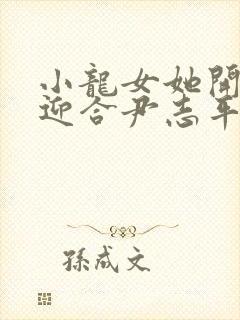 小龍女她開
迎合尹志平
孫成文